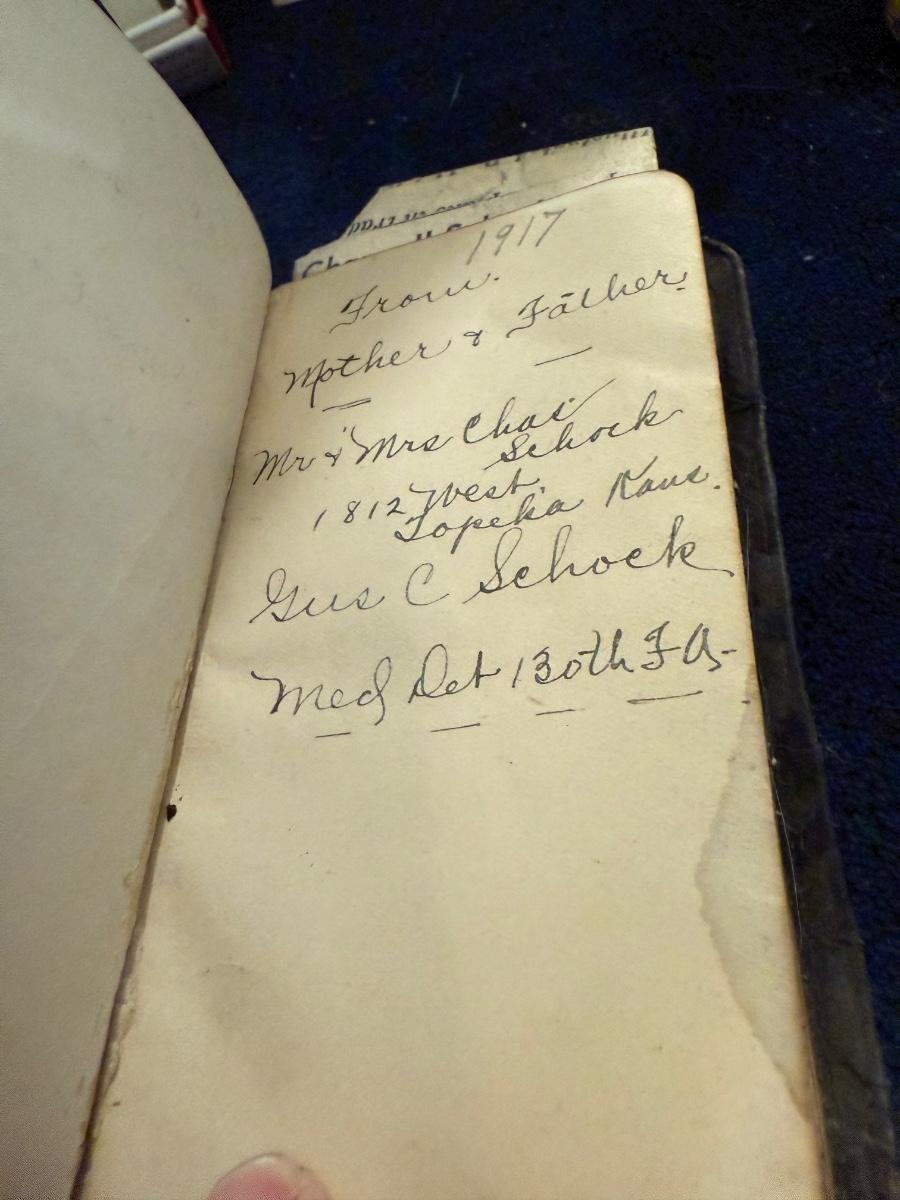 1917
From.
Mother & Father.
Mr & Mrs Chas
Schock
1812 West.
Topeka Kans.
Gus C Schock
Med Det 130th F A-